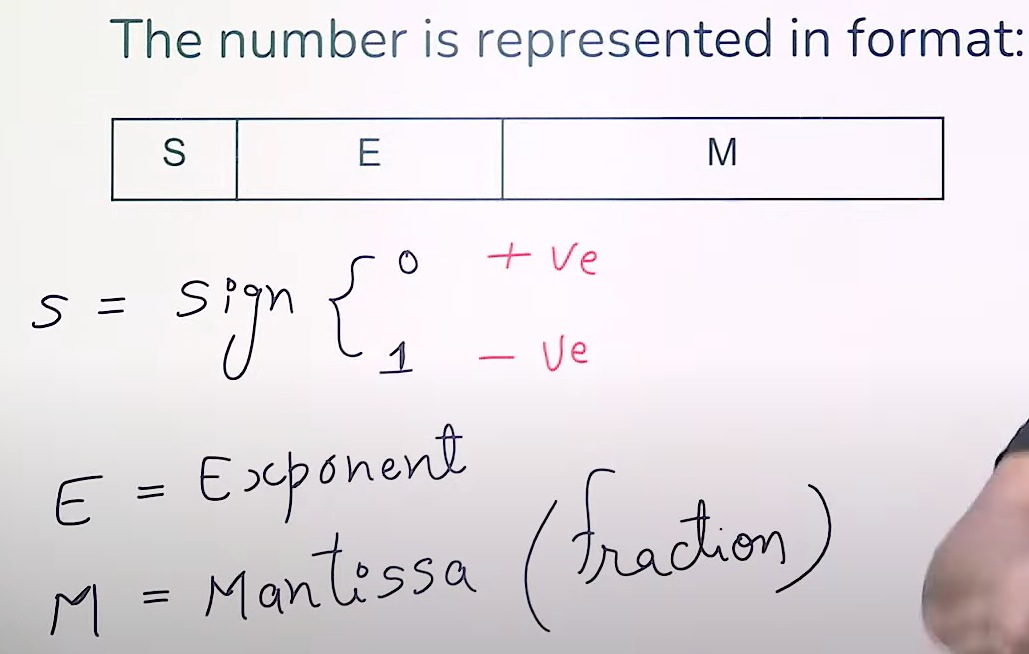 The number is represented in format:
S E M
S = Sign { 0 + ve
1 - ve
E = Exponent
M = Mantissa (fraction)